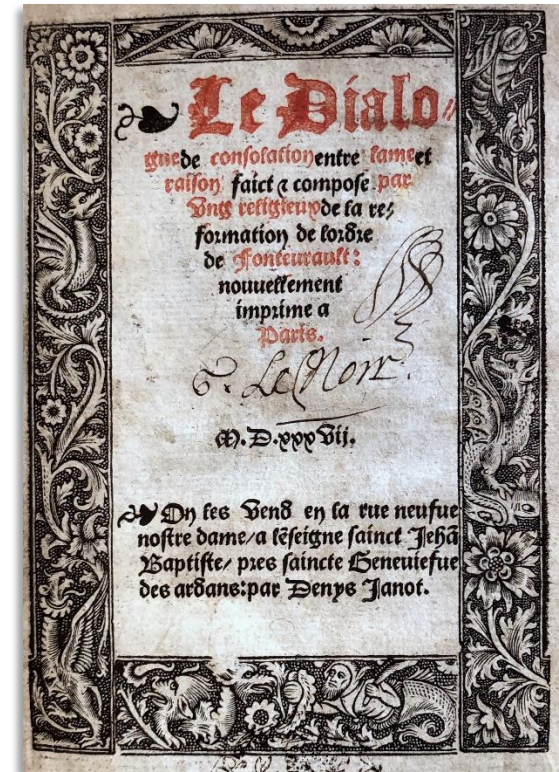 Le Dialo⸗
guede consolation entre lame et
raison faict ⁊ compose par
Ung religieux de la re⸗
formation de lordre
de Fonteurault:
nouuellement
imprime a
Paris.
Le Noir.
M.D.xxxvij.
On les Vend en la rue neufue
nostre dame/a lẽseigne sainct Jehã
Baptiste/ pres saincte Geneuiefue
des ardans:par Denys Janot.